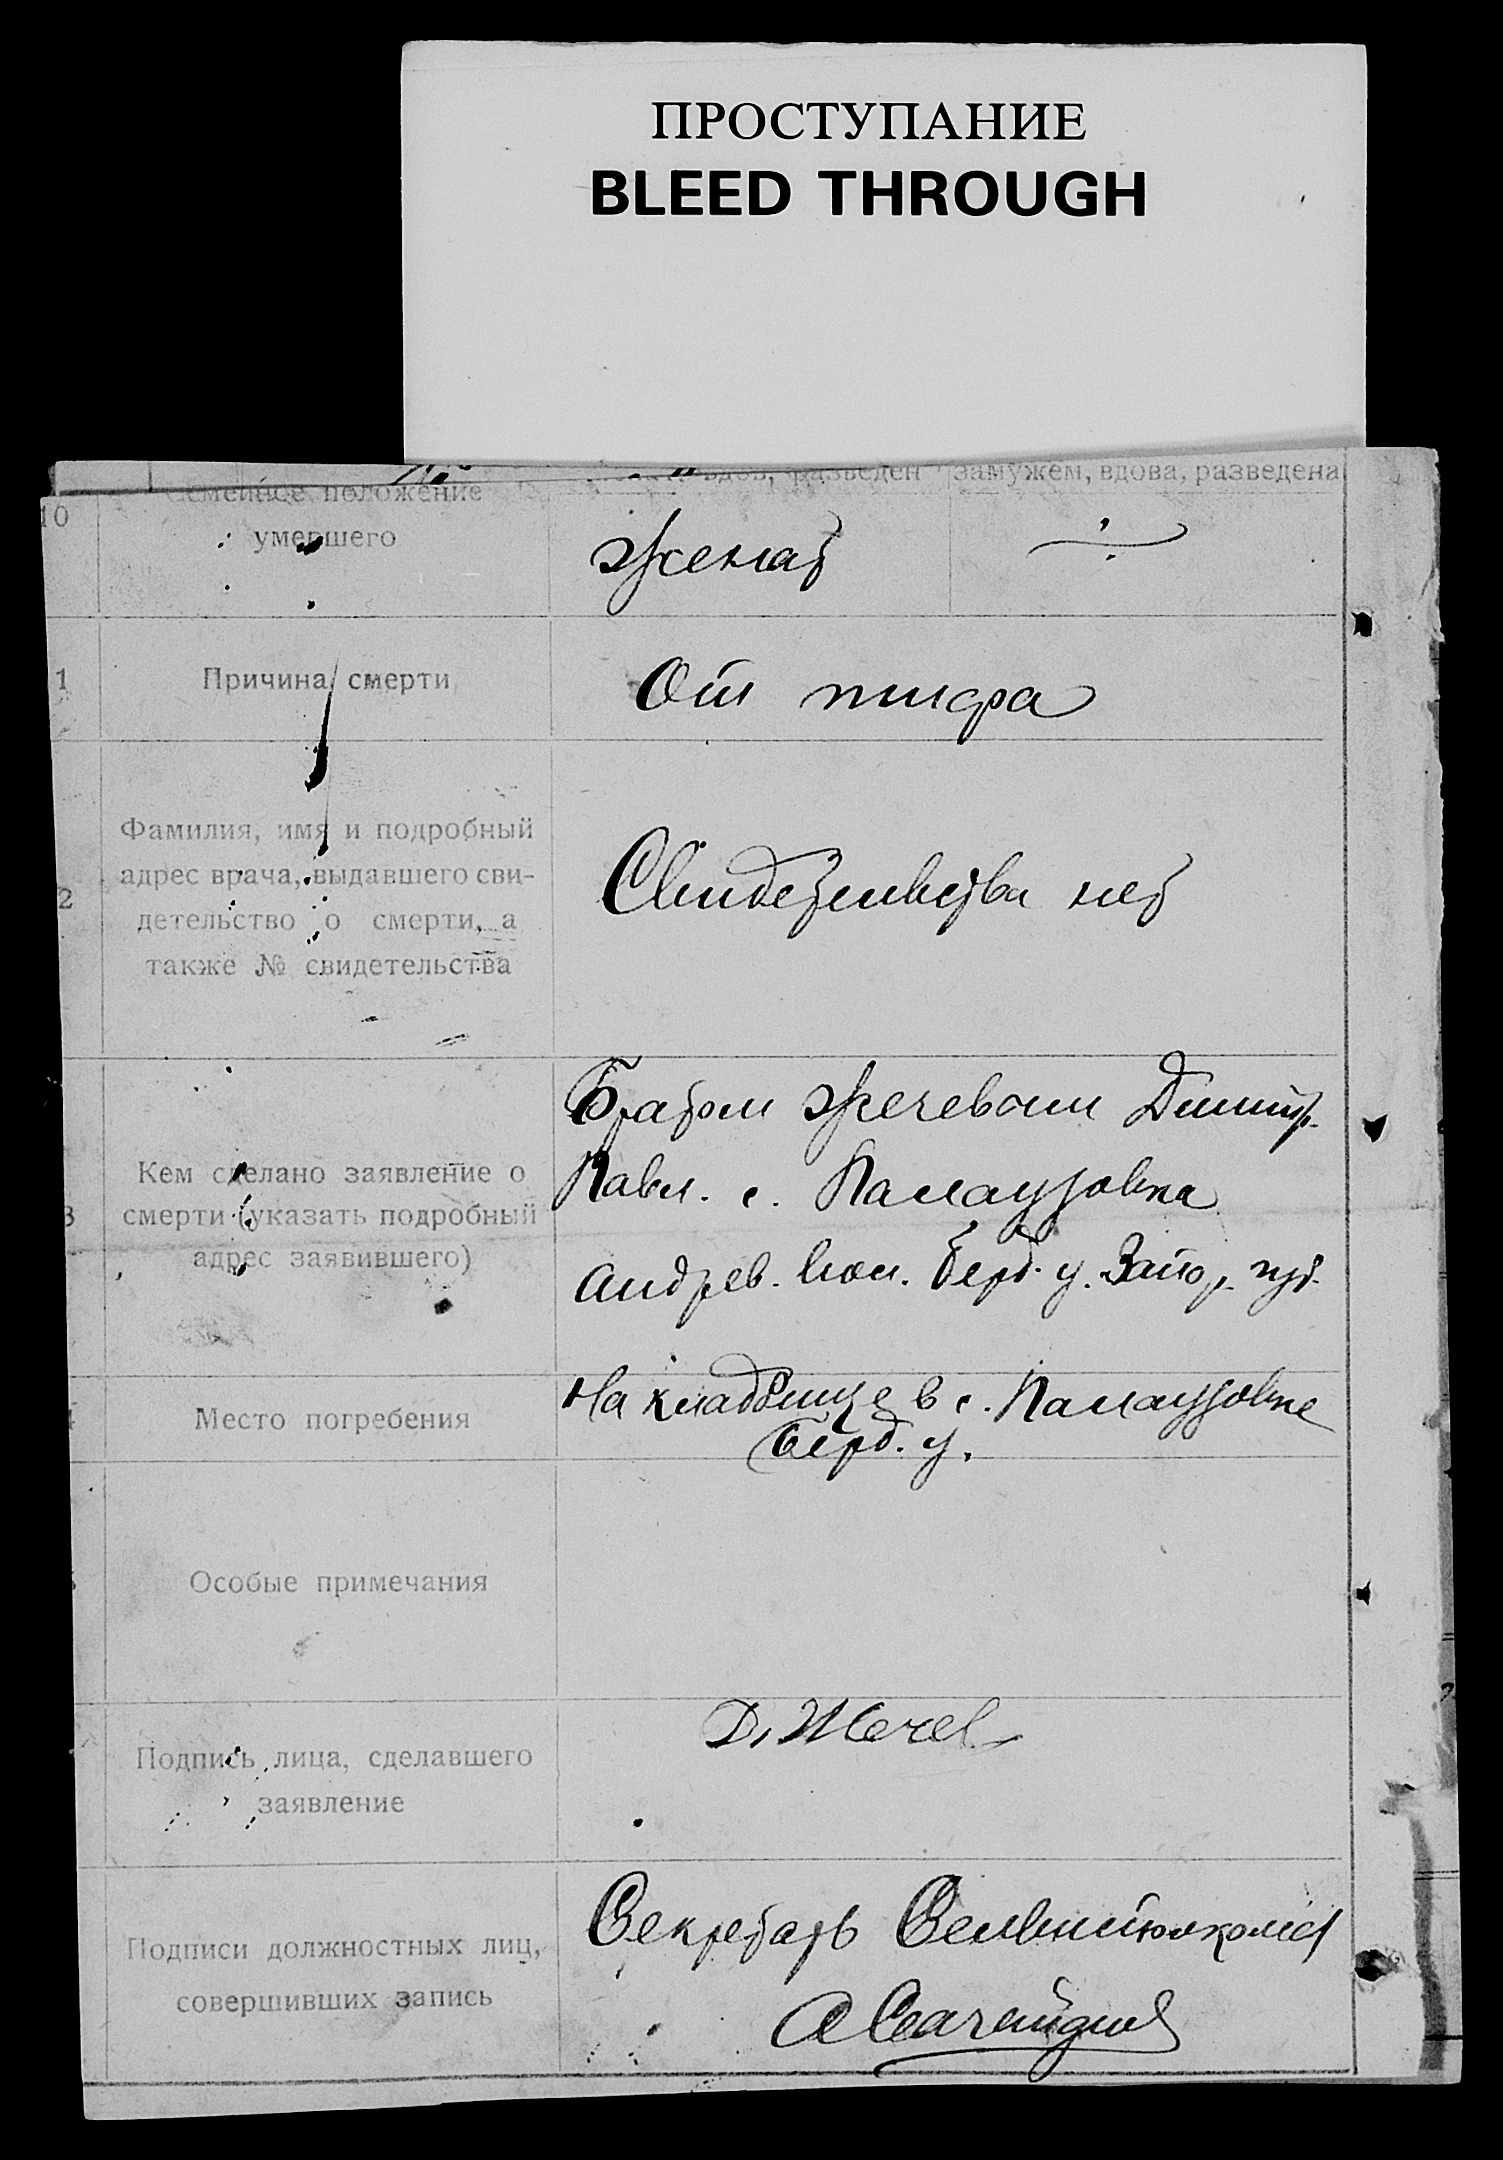 ПРОСТУПАНИЕ
BLEED THROUGH
10
Семейное положение
умершего
вдов, разведен
замужем, вдова, разведена
женат
1
Причина смерти
От тифа
2
Фамилия, имя и подробный
адрес врача, выдавшего сви-
детельство о смерти, а
также № свидетельства
Свидетельства нет
3
Кем сделано заявление о
смерти (указать подробный
адрес заявившего)
Братом Жечевым Димитр.
Павл. с. Палаузовка
Андрев. вол. Берд. у. Запор. губ.
Место погребения
На кладбище в с. Палаузовке
Берд. у.
Особые примечания
Подпись лица, сделавшего
заявление
Д. Жечев
Подписи должностных лиц,
совершивших запись
Секретарь Сельисполкома